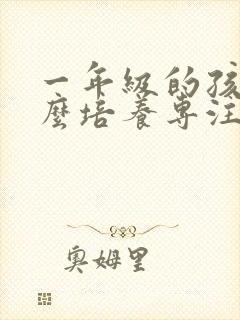 一年級的孩
麼培養專注
奧姆里